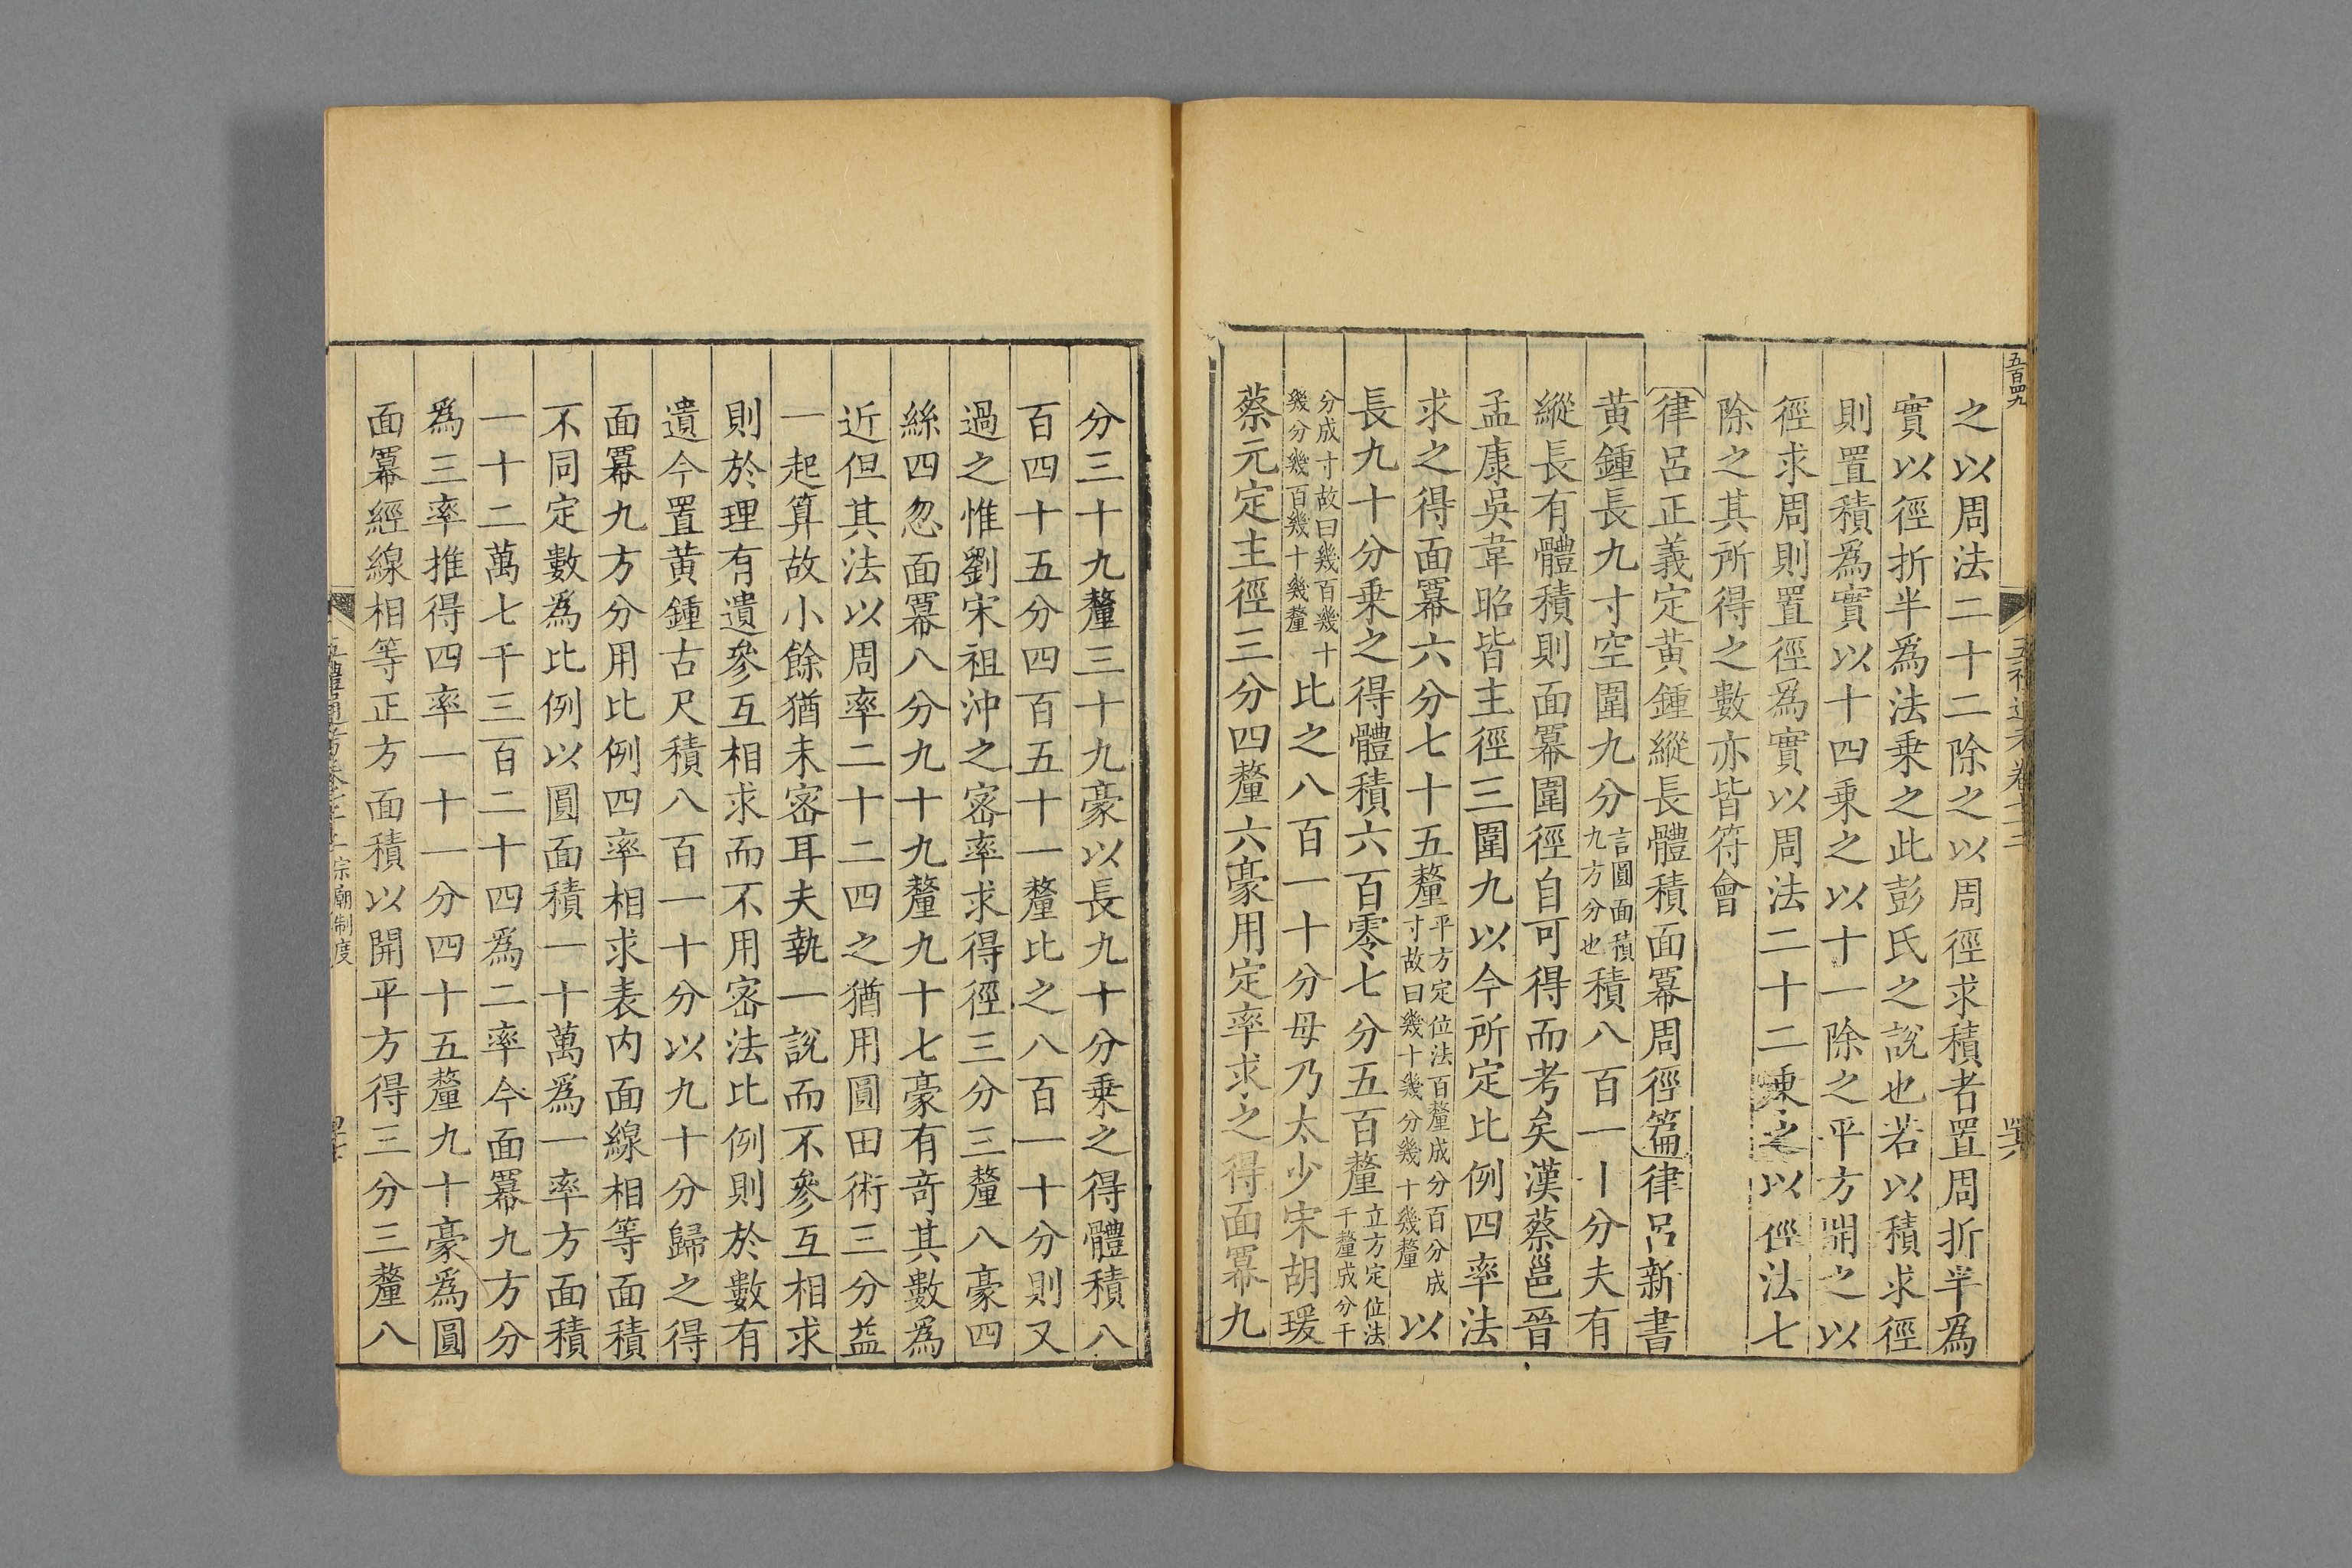 五百四九
之以周法二十二除之以周徑求積者置周折半為
實以徑折半為法乗之此彭氏之說也若以積求徑
則置積為實以十四乗之以十一除之平方開之以
徑求周則置徑為實以周法二十二乗之以徑法七
除之其所得之數亦皆符會
律呂正義定黃鍾縱長體積面冪周徑篇律呂新書
黃鍾長九寸空圍九分言圓面積九方分也積八百一十分夫有
縱長有體積則面冪圍徑自可得而考矣漢蔡邕晉
孟康吳韋昭皆主徑三圍九以今所定比例四率法
求之得面冪六分七十五釐平方定位法百釐成分百分成寸故曰幾十幾分幾十幾釐以
長九十分乗之得體積六百零七分五百釐立方定位法千釐成分千
分成寸故曰幾百幾十幾分幾百幾十幾釐比之八百一十分毋乃太少宋胡瑗
蔡元定主徑三分四釐六豪用定率求之得面冪九
分三十九釐三十九豪以長九十分乗之得體積八
百四十五分四百五十一釐比之八百一十分則又
過之惟劉宋祖沖之宻率求得徑三分三釐八豪四
絲四忽面冪八分九十九釐九十七豪有奇其數為
近但其法以周率二十二四之猶用圓田術三分益
一起算故小餘猶未宻耳夫執一說而不參互相求
則於理有遺參互相求而不用宻法比例則於數有
遺今置黃鍾古尺積八百一十分以九十分歸之得
面冪九方分用比例四率相求表内面線相等面積
不同定數為比例以圓面積一十萬為一率方面積
一十二萬七千三百二十四為二率今面冪九方分
為三率推得四率一十一分四十五釐九十豪為圓
面冪經線相等正方面積以開平方得三分三釐八
宗廟制度